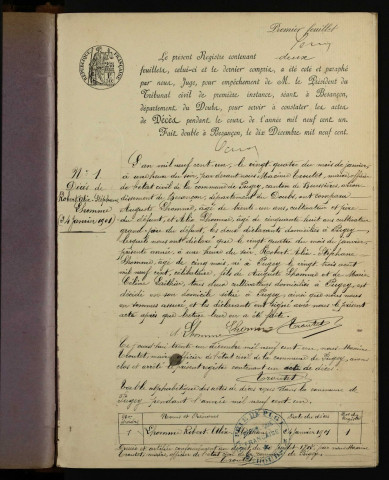 Premier feuillet
Le présent Registre contenant deux
feuillets, celui-ci et le dernier compris, a été coté et paraphé
par nous, Juge, pour empêchement de M. le Président du
Tribunal civil de première instance, séant à Besançon,
département du Doubs, pour servir à constater les actes
de Décès, pendant le cours de l'année mil neuf cent un.
Fait double à Besançon, le dix Décembre mil neuf cent.
N° 1
Décès de
Lhomme
(24 janvier 1901)
L'an mil neuf cent un, le vingt quatre du mois de janvier,
à du soir, par devant nous Maxime officier
de l'état civil de la commune de Pugey, canton de Boussières,
de Besançon, département du Doubs, ont comparu
Auguste Lhomme, âgé de trente ans, cultivateur, père
du défunt, et Lhomme, âgé de cinquante huit ans, cultivateur,
grand père du défunt, les deux déclarants domiciliés à Pugey,
lesquels nous ont déclaré que le vingt quatre du mois de janvier
présente année, à une heure du soir, Robert Stéphane
Lhomme, âgé de cinq mois, né à Pugey le vingt trois août
mil neuf cent, célibataire, fils de Auguste Lhomme et de Marie
tous deux cultivateurs domiciliés à Pugey, est
décédé en son domicile situé à Pugey, ainsi que nous nous
en sommes assuré et les déclarants ont signé avec nous le présent
acte après que lecture leur en a été faite.
Lhomme Lhomme
Ce jourd'hui trente un décembre mil neuf cent un, nous Maxime
maire, officier de l'état civil de la commune de Pugey, avons
clos et arrêté le présent registre contenant un acte de décès.
Table alphabétique des actes de décès reçus dans la commune de
Pugey pendant l'année mil neuf cent un.
Noms et Prénoms
Date du décès
1 Lhomme Robert 24 janvier 1901 1